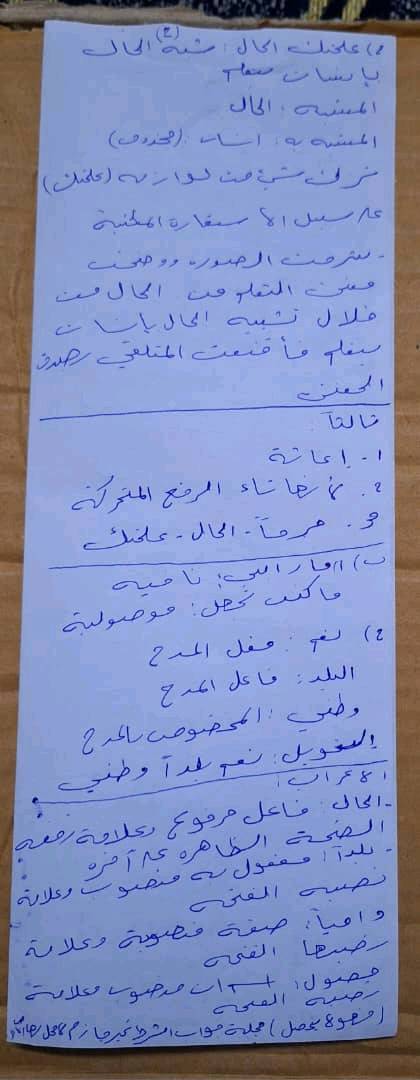 ٢) علمتك الحال: شبه (٢) الحال
بإنسان يتعلم
المشبه: الحال
المشبه به: إنسان (محذوف)
ترك شيئاً من لوازمه (علمتك)
على سبيل الاستعارة المكنية
- شرحت الصورة ووضحت
معنى التعلم من الحال من
خلال تشبيه الحال بإنسان
يتعلم فأقنعت المتلقي بصدق
المعنى
ثالثاً:
١- إعانة
٢. لاتصالها بتاء الرفع المتحركة
٣. حرماً - الحال - علمتك
ب) ١) ما رأيي: نافية
ما كنت تجهل: موصولية
٢) نعم: فعل المدح
البلد: فاعل المدح
وطني: المخصوص بالمدح
التحويل: نعم بلداً وطني
الإعراب:
- الحال: فاعل مرفوع وعلامة رفعه
الضمة الظاهرة على آخره
- بلداً: مفعول به منصوب وعلامة
نصبه الفتحة
واهباً: صفة منصوبة وعلامة
نصبها الفتحة
منصوب وعلامة
نصبه الفتحة
جملة جواب الشرط غير جازم لا محل لها